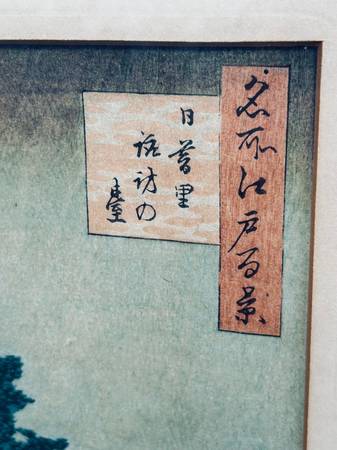 名所江戸百景
日暮里
諏訪の
臺